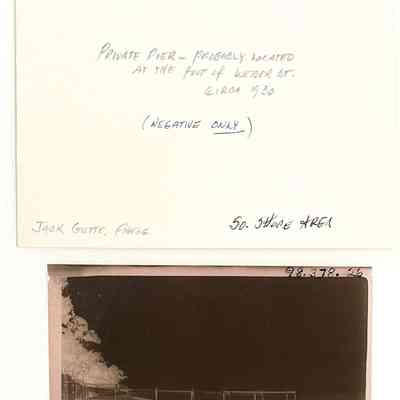 PRIVATE PIER - PROBABLY LOCATED
AT THE FOOT OF WEBER ST.
CIRCA 1920
(NEGATIVE ONLY)
JACK
SO. SHORE AREA
98.378.26